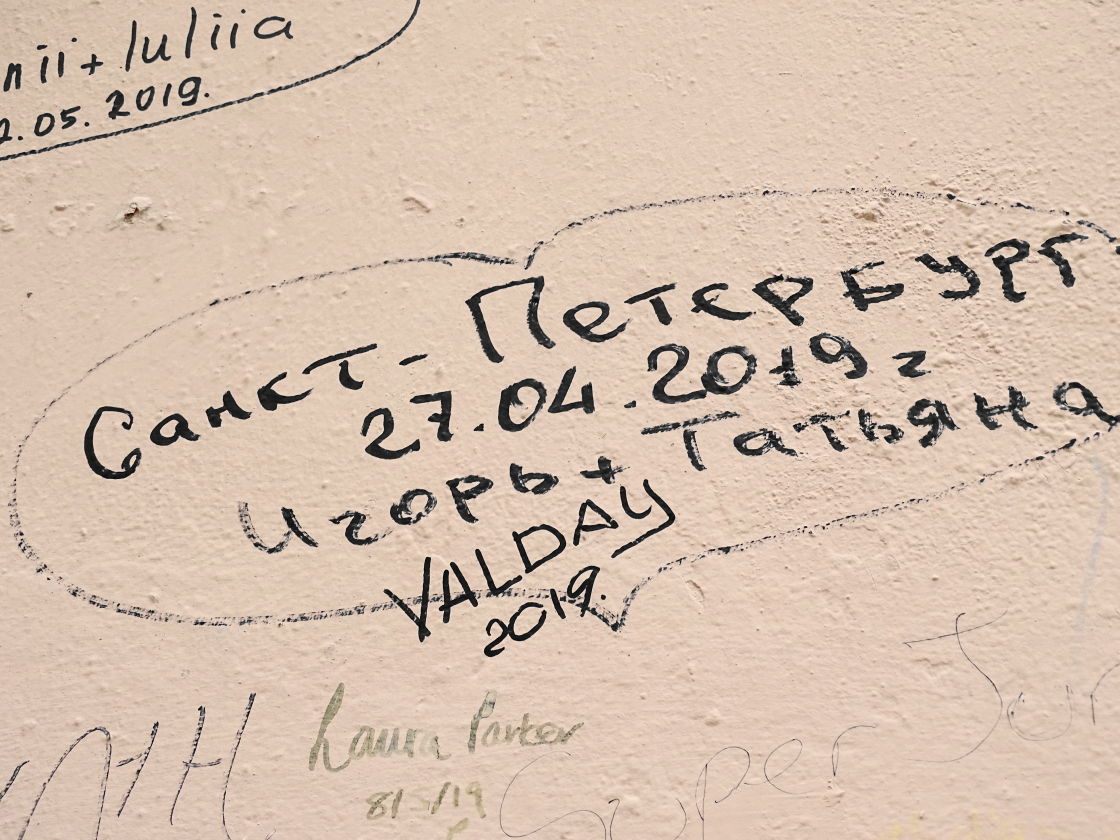 + Iuliia
.05.2019.
Санкт-Петербург
27.04.2019г
Игорь + Татьяна
VALDAY
2019.
Laura Parker
8/5/19
Super